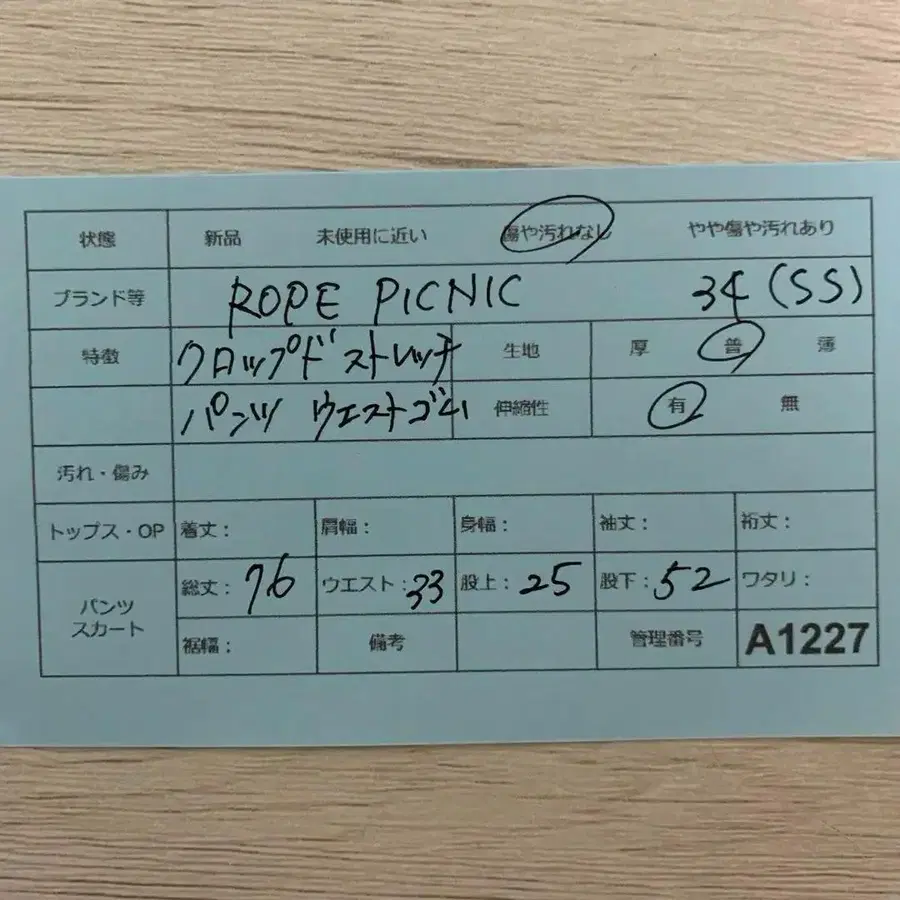 状態 新品 未使用に近い 傷や汚れなし やや傷や汚れあり
ブランド等 ROPE PICNIC 34(SS)
特徴 クロップドストレッチ 生地 厚 普 薄
パンツ ウエストゴム 伸縮性 有 無
汚れ・傷み
トップス・OP 着丈: 肩幅: 身幅: 袖丈: 裄丈:
パンツ スカート 総丈:76 ウエスト:33 股上:25 股下:52 ワタリ:
裾幅: 備考 管理番号 A1227